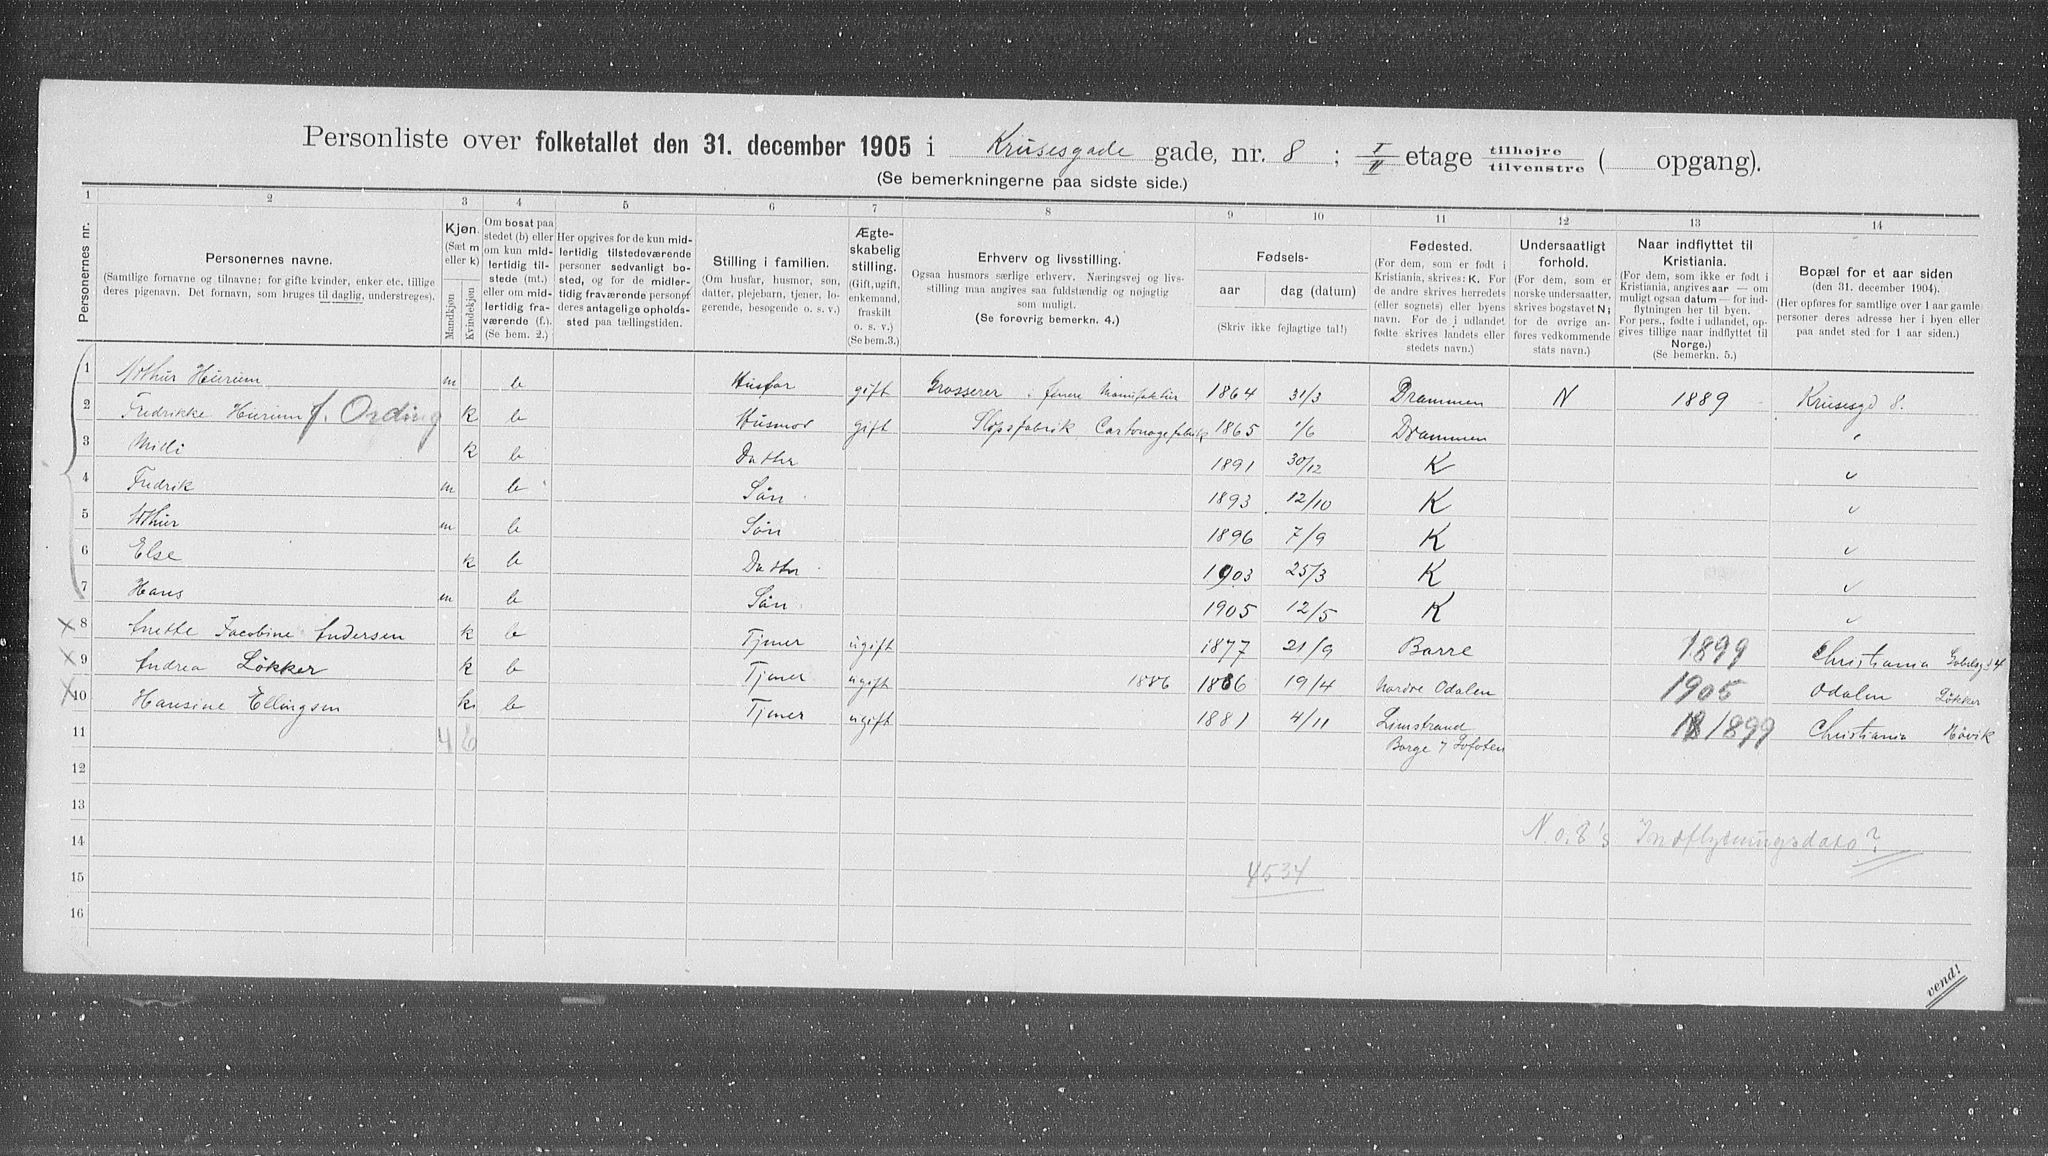 Personliste over folketallet den 31. december 1905 i Krusesgade gade, nr. 8 ; I/II etage tilhøjre tilvenstre ( opgang).
(Se bemerkningerne paa sidste side.)
1 2 3 4 5 6 7 8 9 10 11 12 13 14
Personernes nr.
Personernes navne.
(Samtlige fornavne og tilnavne; for gifte kvinder, enker etc. tillige
deres pigenavn. Det fornavn, som bruges til daglig, understreges).
Kjøn.
(Sæt m
eller k)
Mandkjøn
Kvindekjøn
Om bosat paa
stedet (b) eller
om kun mid-
lertidig til-
stede (mt.)
eller om mid-
lertidig fra-
værende (f.).
(Se bem. 2.)
Her opgives for de kun mid-
lertidig tilstedeværende
personer sedvanlig bo-
sted, og for de midler-
tidig fraværende personer
deres antagelige opholds-
sted paa tællingstiden.
Stilling i familien.
(Om husfar, husmor, søn,
datter, plejebarn, tjener, lo-
gerende, besøgende o. s. v.)
Ægte-
skabelig
stilling.
(Gift, ugift,
enkemand,
fraskilt
o. s. v.)
(Se bem.3.)
Erhverv og livsstilling.
Ogsaa husmors særlige erhverv. Næringsvej og livs-
stilling maa angives saa fuldstændig og nøjagtig
som muligt.
(Se forøvrig bemerkn. 4.)
Fødsels-
aar
dag (datum)
(Skriv ikke fejlagtige tal!)
Fødested.
(For dem, som er født i
Kristiania, skrives: K. For
de andre skrives herredets
(eller sognets) eller byens
navn. For de i udlandet
fødte skrives landets eller
stedets navn.)
Undersaatligt
forhold.
(For dem, som er
norske undersaatter,
skrives bogstavet N;
for de øvrige an-
føres vedkommende
stats navn.)
Naar indflyttet til
Kristiania.
(For dem, som ikke er født i
Kristiania, angives aar — om
muligt ogsaa datum — for ind-
flytningen her til byen.
For pers., fødte i udlandet, op-
gives tillige naar indflyttet til
Norge.)
(Se bemerkn. 5.)
Bopæl for et aar siden
(den 31. december 1904).
(Her opføres for samtlige over 1 aar gamle
personer deres adresse her i byen eller
paa andet sted for 1 aar siden.)
1 Arthur Hurum m b Husfar gift Grosserer i finere Manufaktur 1864 31/3 Drammen N 1889 Krusesgd 8.
2 Fredrikke Hurum f. Ording k b Husmor gift Slipsfabrik Cartonagefabrik 1865 1/6 Drammen "
3 Milli k b Datter 1891 30/12 K "
4 Fredrik m b Søn 1893 12/10 K "
5 Arthur m b Søn 1896 7/9 K "
6 Else k b Datter 1903 25/3 K "
7 Hans m b Søn 1905 12/5 K "
X 8 Anette Jacobine Andersen k b Tjener ugift 1877 21/9 Borre 1899 Christiania
X 9 Andrea Løkker k b Tjener ugift 1886 1886 19/4 Nordre Odalen 1905 Odalen Løkker
X 10 Hansine Ellingsen k b Tjener ugift 1881 4/11 Limstrand 1899 Christiania Høvik
11 4 6 Borge i Lofoten
12
13
14 No. 8's Indflytningsdato?
15 4534
16
vend!